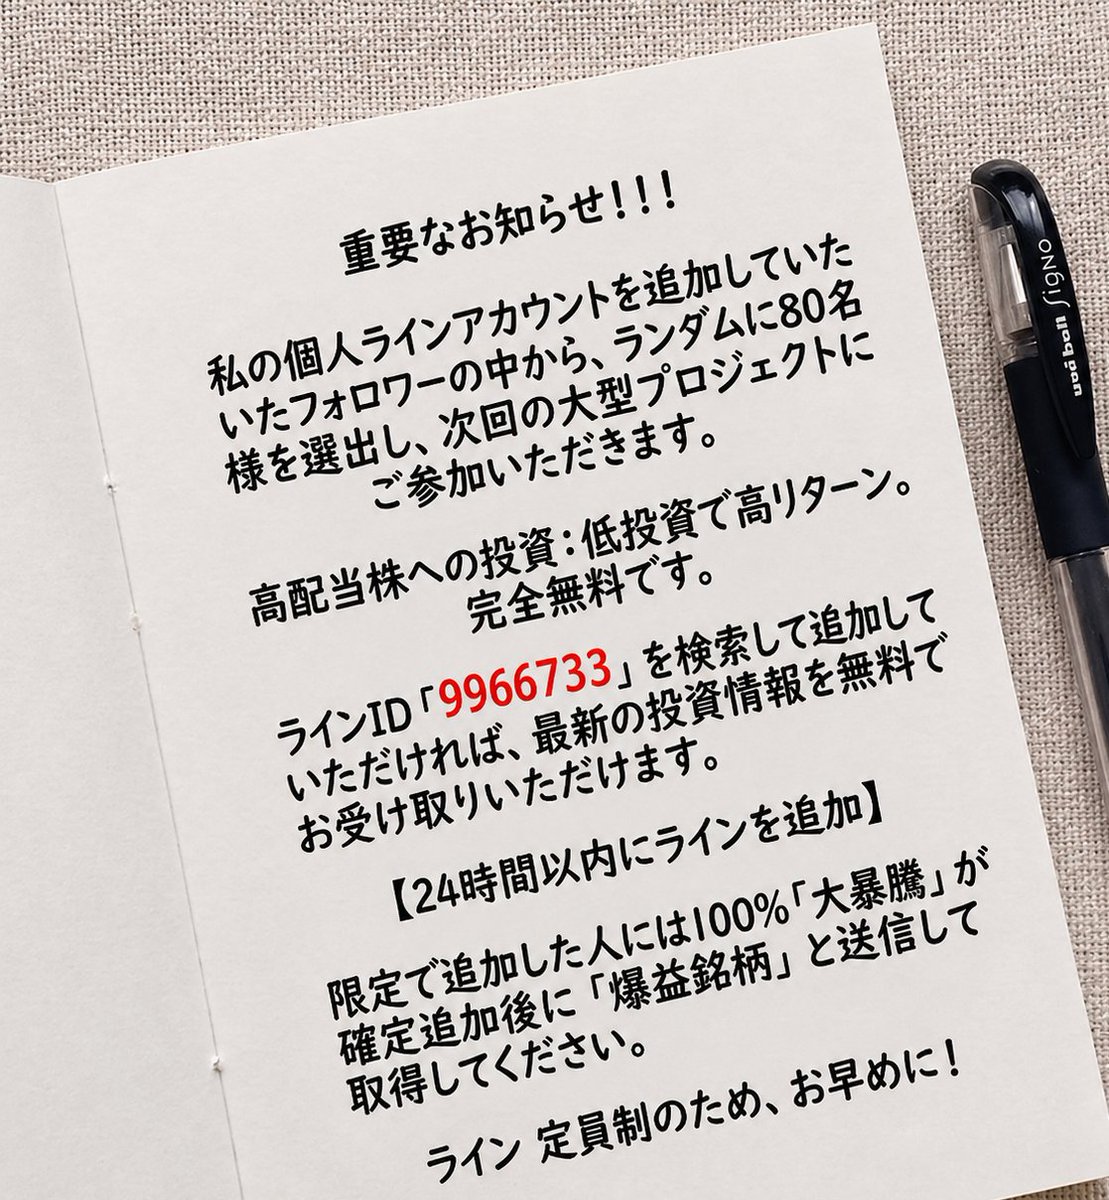 重要なお知らせ!!!
私の個人ラインアカウントを追加していた
いたフォロワーの中から、ランダムに80名
様を選出し、次回の大型プロジェクトに
ご参加いただきます。
高配当株への投資:低投資で高リターン。
完全無料です。
ラインID「9966733」を検索して追加して
いただければ、最新の投資情報を無料で
お受け取りいただけます。
【24時間以内にラインを追加】
限定で追加した人には100%「大暴騰」が
確定追加後に「爆益銘柄」と送信して
取得してください。
ライン 定員制のため、お早めに!
uni ball SigNO